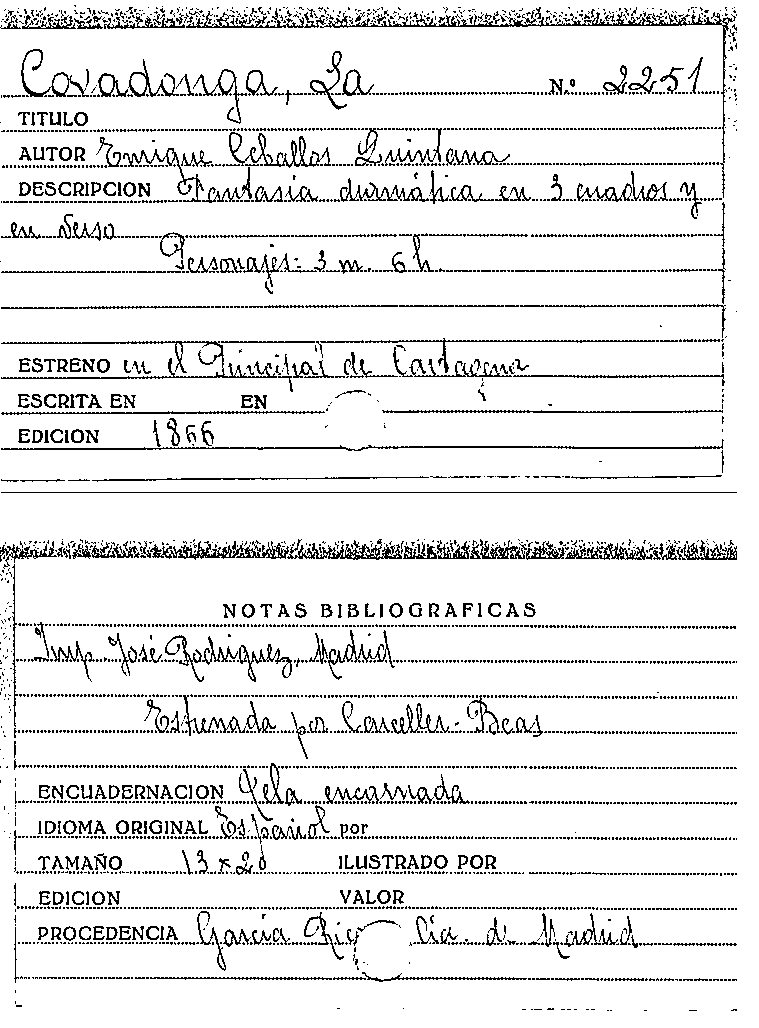 Covadonga, La Nº 2251
TITULO
AUTOR Enrique Ceballos Quintana
DESCRIPCION Fantasía durmática en 3 cuadros y
en verso
Personajes: 3 m. 6 h.
ESTRENO en el Principal de Cartagena
ESCRITA EN EN
EDICION 1866
NOTAS BIBLIOGRAFICAS
Imp. José Rodriguez, Madrid
Estrenada por Carceller-Beas
ENCUADERNACION Tela encarnada
IDIOMA ORIGINAL Español por
TAMAÑO 13 x 20 ILUSTRADO POR
EDICION VALOR
PROCEDENCIA García Rico Cía. de Madrid